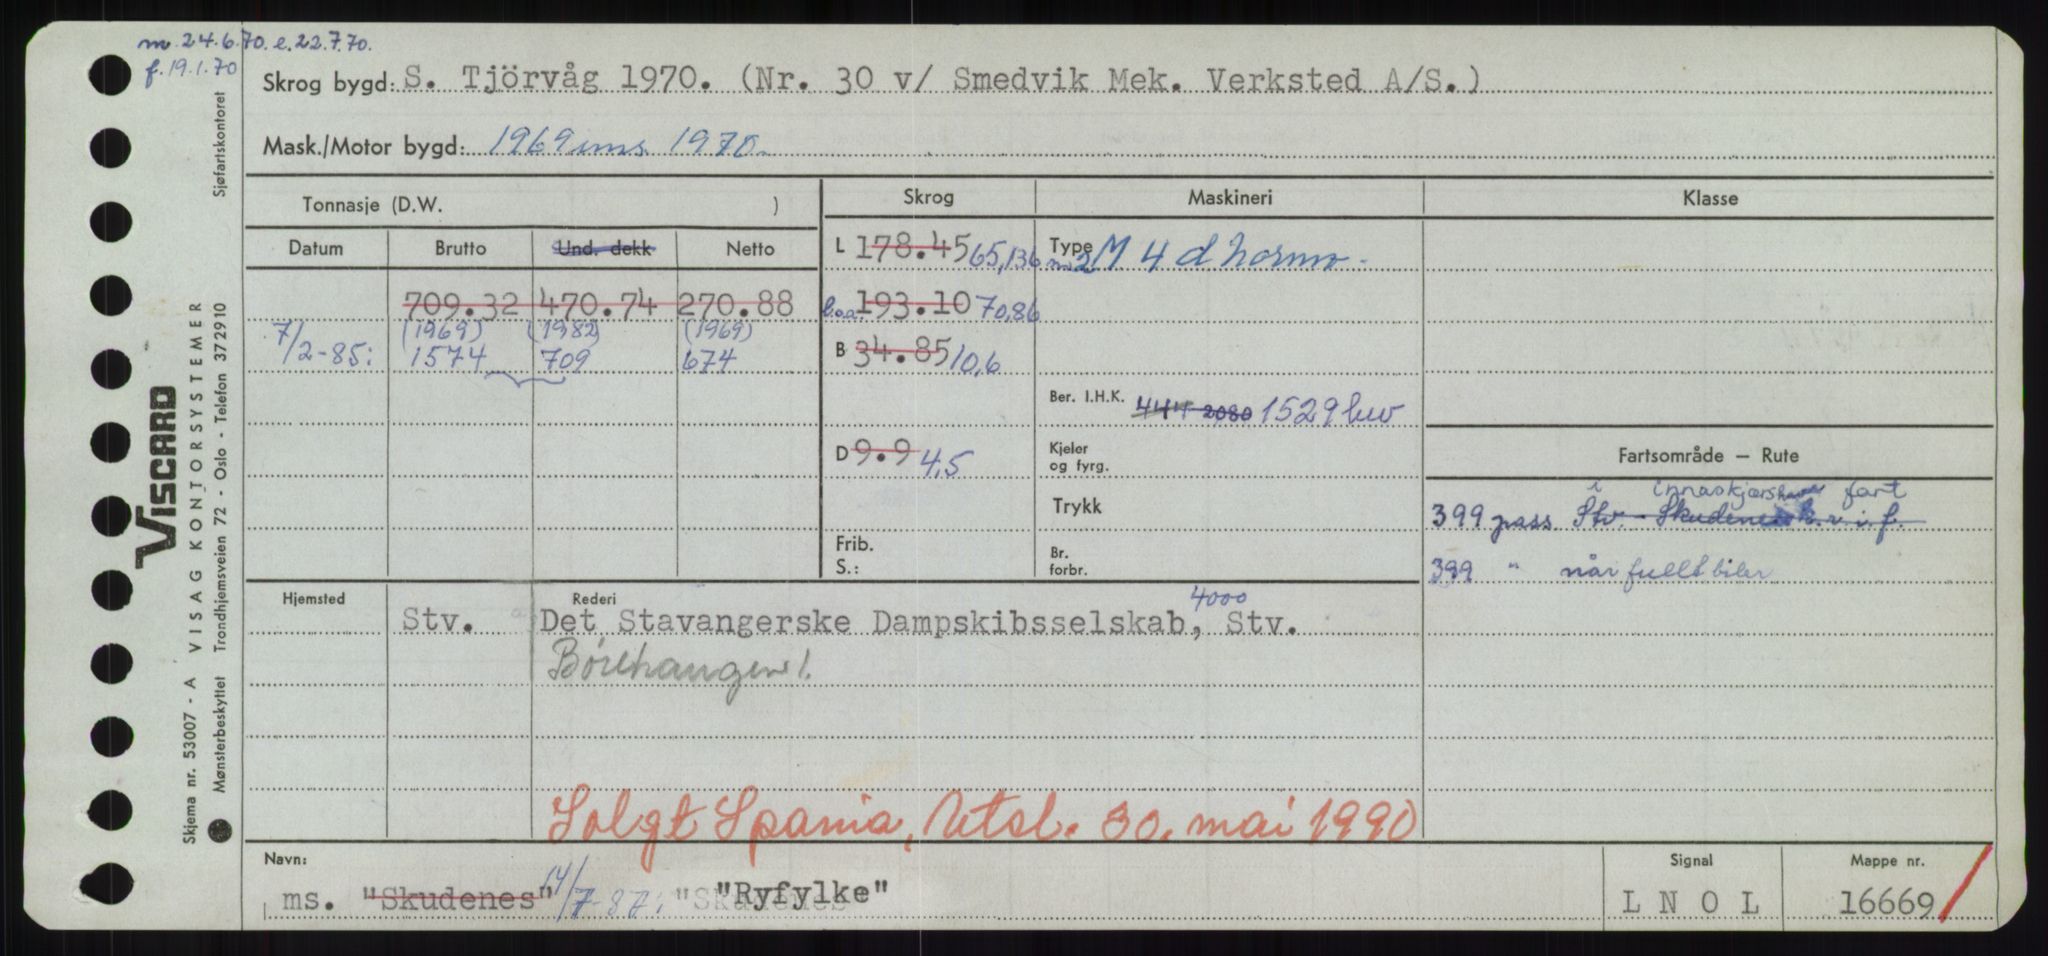 m. 24.6.70. e. 22.7.70.
f. 19.1.70
Skrog bygd: S. Tjörvåg 1970. (Nr. 30 v/ Smedvik Mek. Verksted A/S.)
Mask./Motor bygd: 1969 ims. 1970.
Tonnasje (D.W. )
Skrog Maskineri Klasse
Datum Brutto Und. dekk Netto
L 178.45 65,136
Type M 4 d norm.
709.32 470.74 270.88
l.o.a. 193.10 70,86
(1969) (1982) (1969)
7/2-85: 1574 709 674
B 34.85 10,6
Ber. I.H.K. 2080 1529
D 9.9 4,5
Kjeler
og fyrg.
Trykk
Frib.
S.:
Br.
forbr.
Fartsområde — Rute
i fart
399 pass. Stv. - r.i.f.
399 " når fullt biler
Hjemsted Rederi
4000
Stv. Det Stavangerske Dampskibsselskab, Stv.
Solgt Spania, Utsl. 30. mai 1990
Navn: Signal Mappe nr.
ms. "Skudenes" 14/7-87: "Skudenes" "Ryfylke" L N O L 16669
VISCARD
Skjema nr. 53007 - A VISAG KONTORSYSTEMER
Mønsterbeskyttet Trondhjemsveien 72 - Oslo - Telefon 372910 Sjøfartskontoret